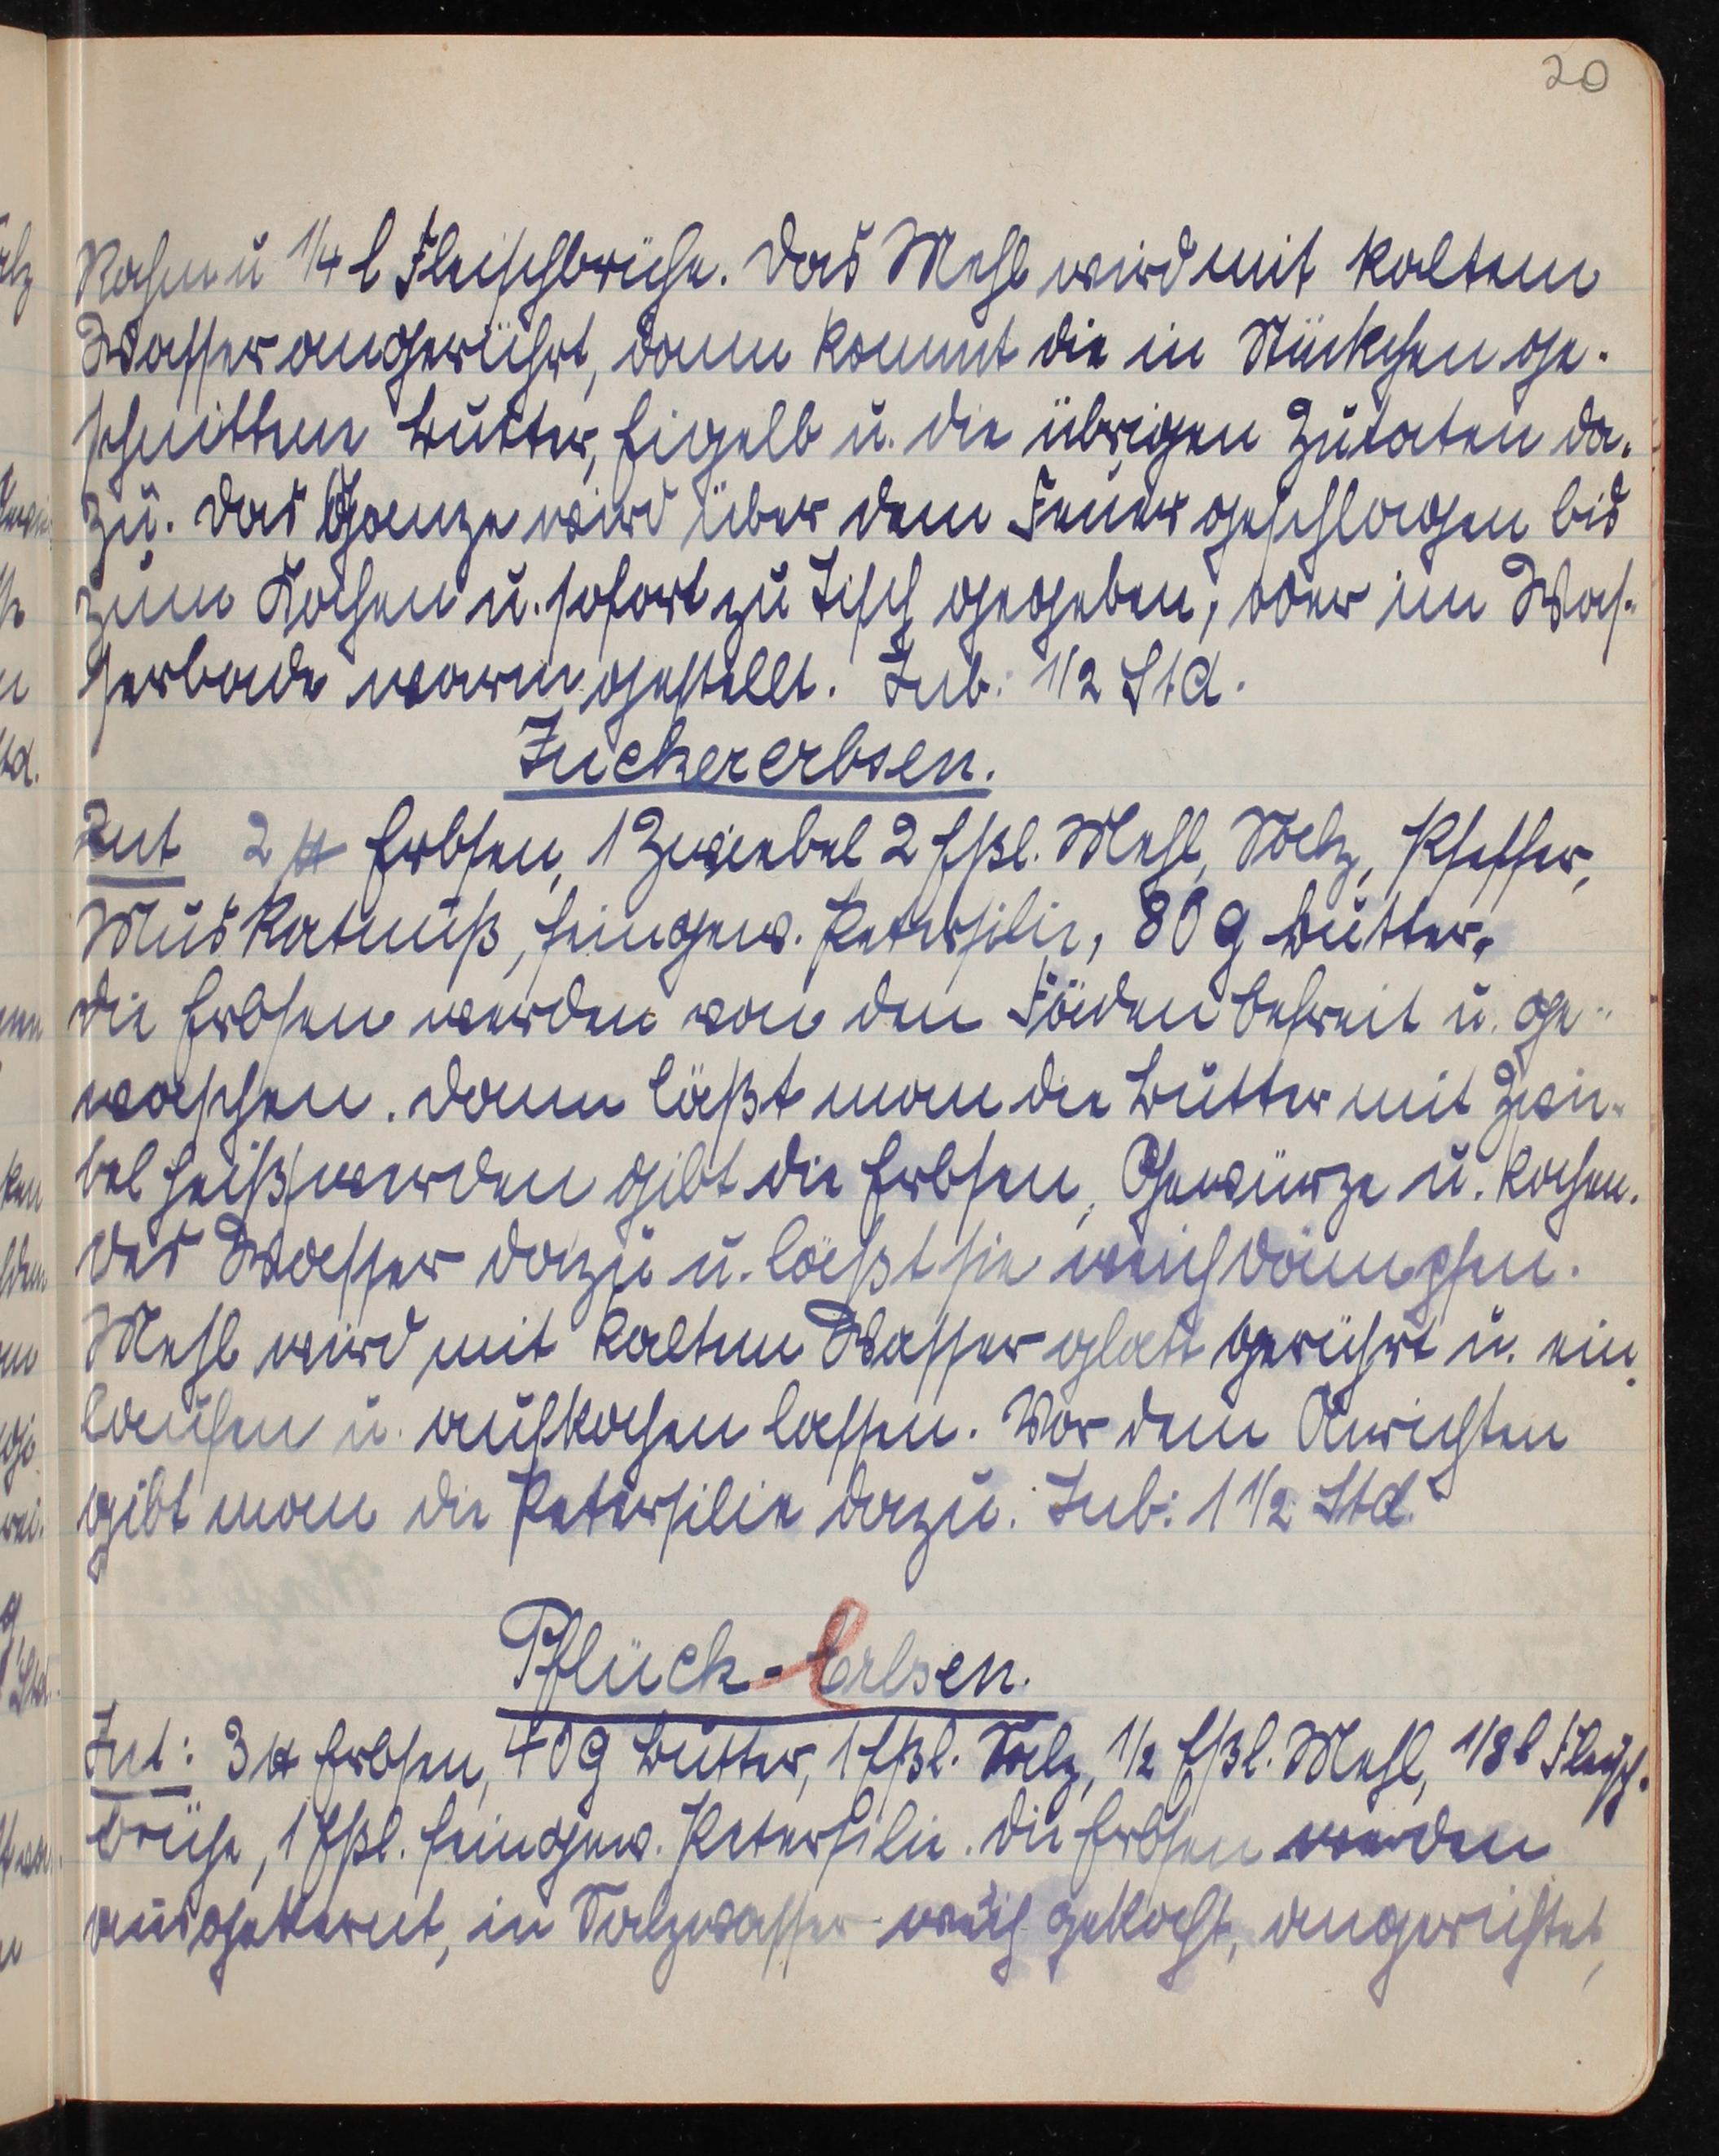 20
Rahm u 1/4 l Fleischbrühe. Das Mehl wird mit kaltem
Wasser angerührt, dann kommt die in Stückchen ge-
schnittene Butter, Eigelb u. die übrigen Zutaten da-
zu. Das Ganze wird über dem Feuer geschlagen bis
zum Kochen u. sofort zu Tisch gegeben, oder im Was-
serbade warm gestellt. Zub: 1/2 Std.
Zuckererbsen.
Zut 2 ℔ Erbsen, 1 Zwiebel 2 Eßl. Mehl, Salz, Pfeffer,
Muskatnuß, feingew. Petersilie, 80 g Butter.
Die Erbsen werden von den Fäden befreit u. ge-
waschen. Dann läßt man die Butter mit Zwie-
bel heiß werden gibt die Erbsen, Gewürze u. kochen-
des Wasser dazu u. läßt sie weich dämpfen.
Mehl wird mit kaltem Wasser glatt gerührt u. ein-
laufen u. aufkochen lassen. Vor dem Anrichten
gibt man die Petersilie dazu. Zub: 1 1/2 Std.
Pflück-Erbsen.
Zut: 3 ℔ Erbsen, 40 g Butter, 1 Eßl. Salz, 1/2 Eßl. Mehl, 1/8 l Fleisch-
brühe, 1 Eßl. feingew. Petersilie. Die Erbsen werden
ausgekernt, in Salzwasser weich gekocht, angerichtet,